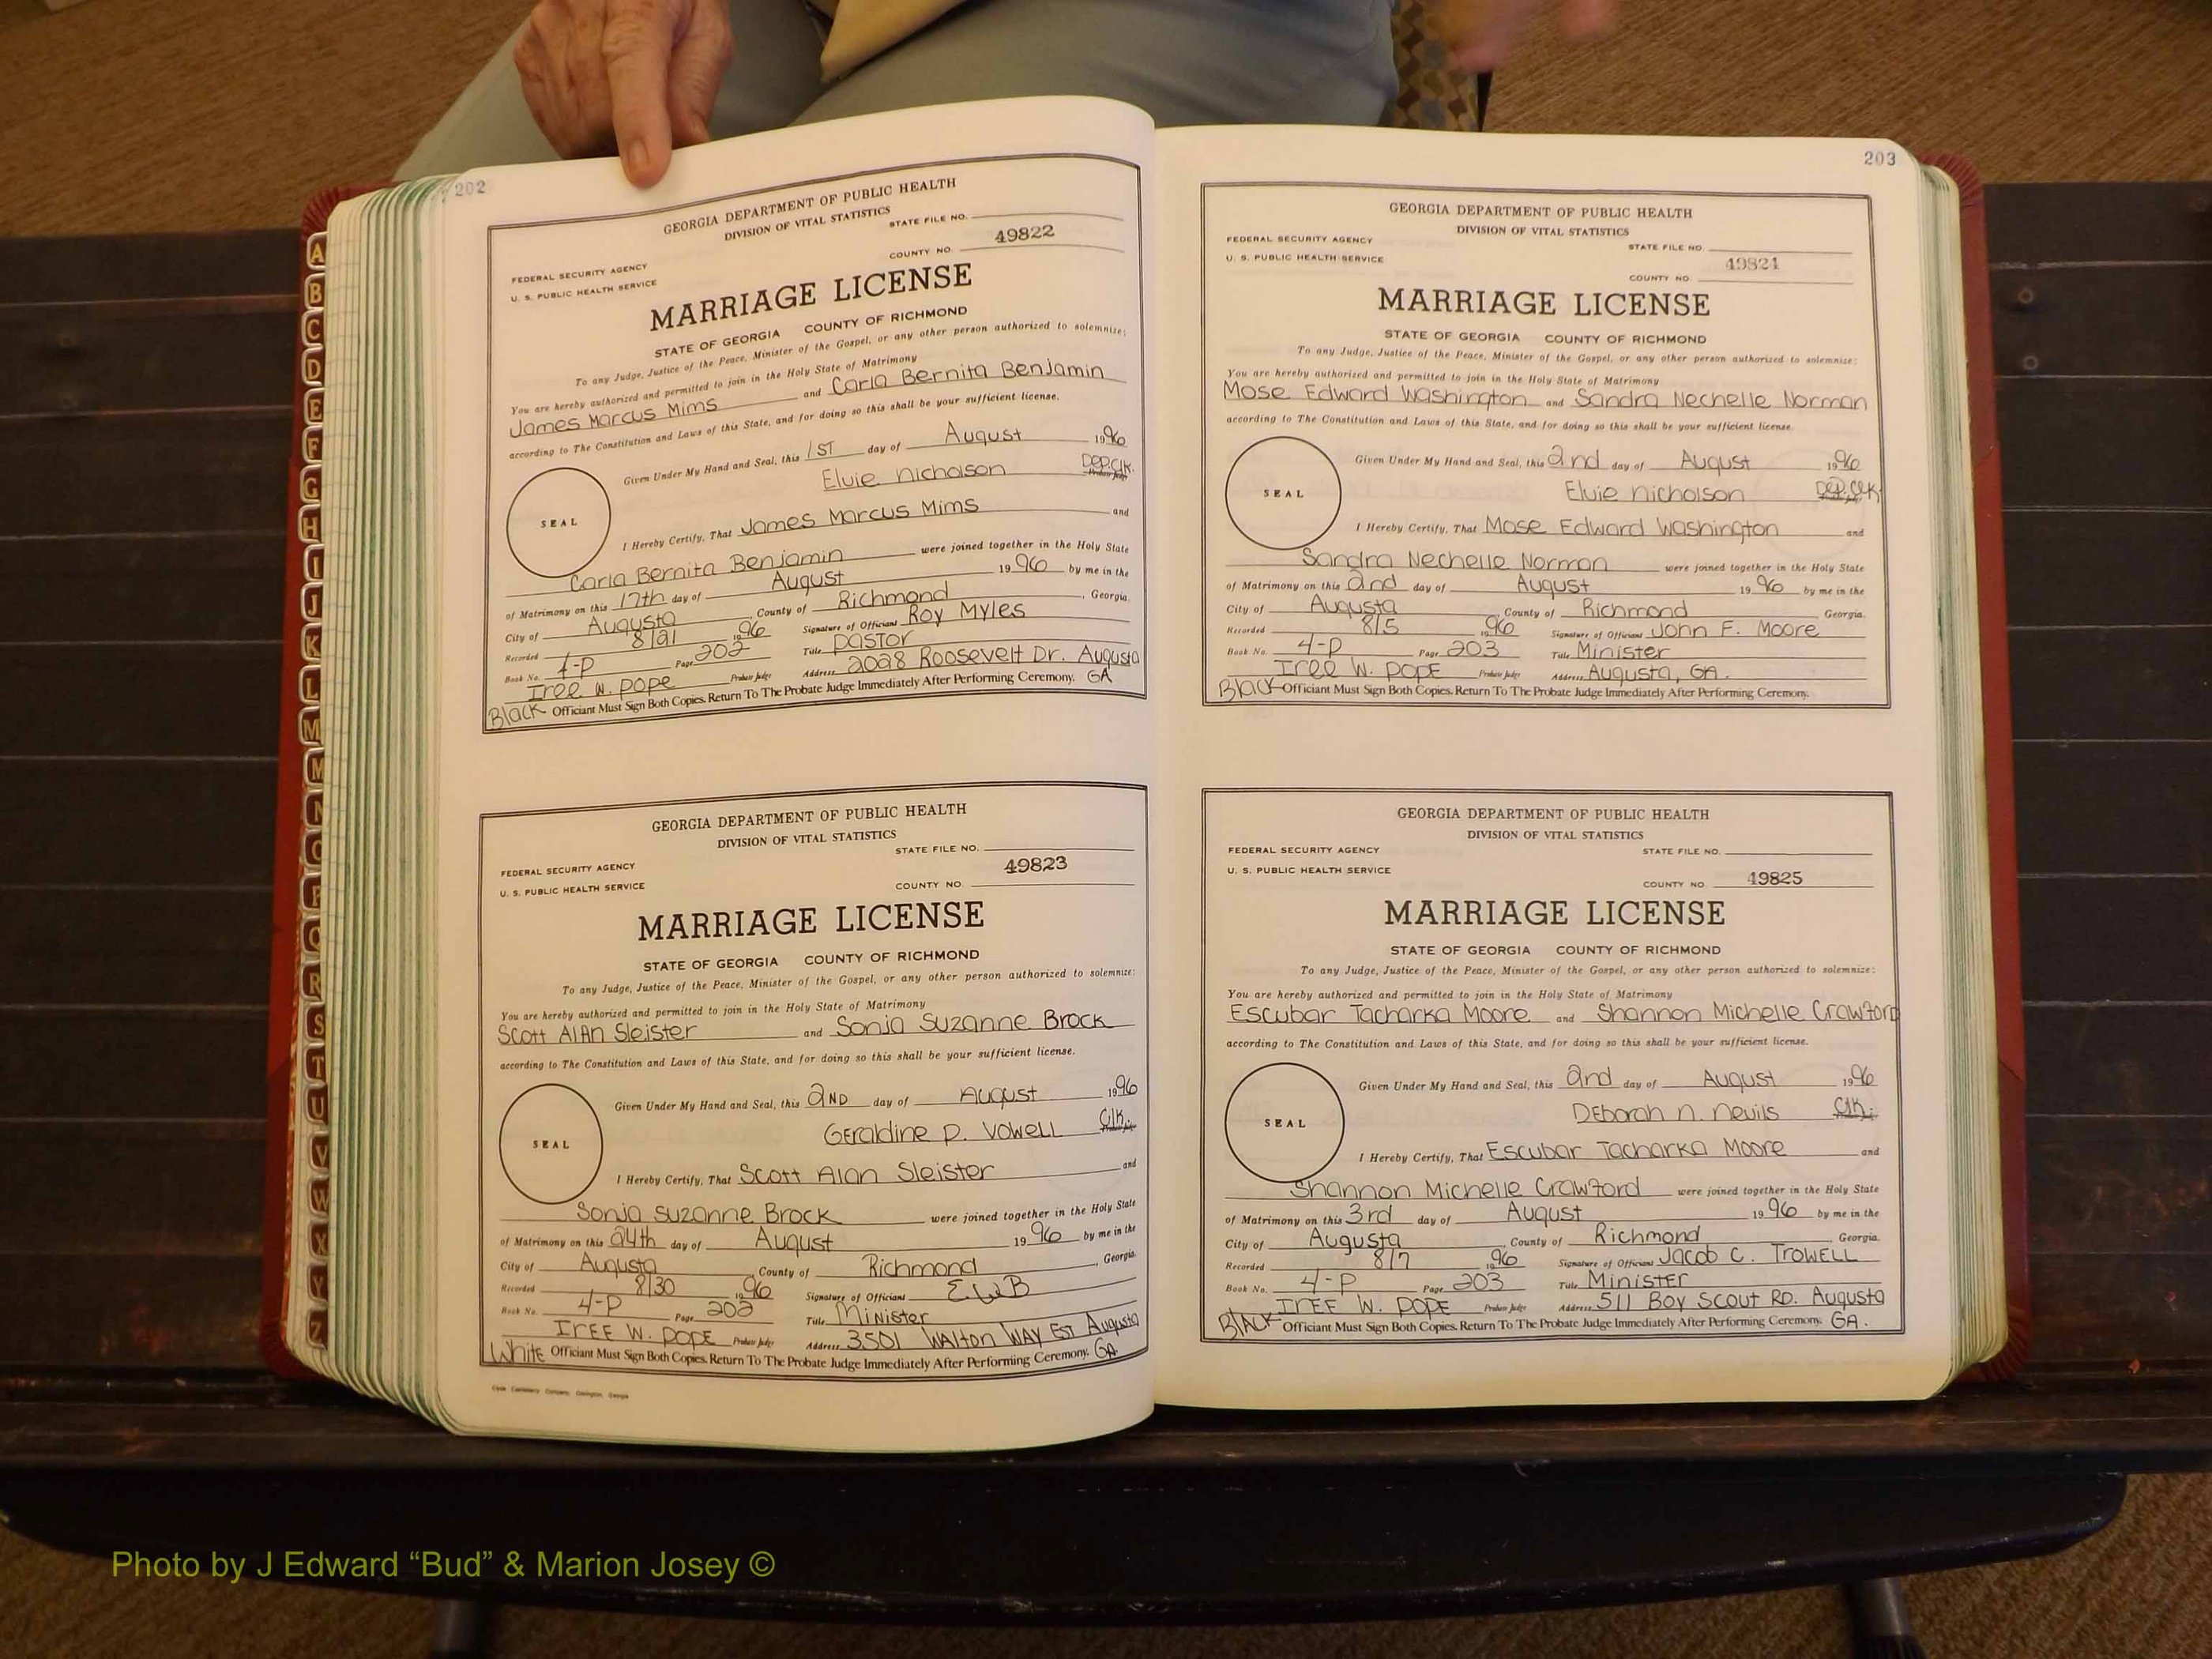 202
GEORGIA DEPARTMENT OF PUBLIC HEALTH
DIVISION OF VITAL STATISTICS
STATE FILE NO.
49822
COUNTY NO.
FEDERAL SECURITY AGENCY
U. S. PUBLIC HEALTH SERVICE
MARRIAGE LICENSE
STATE OF GEORGIA COUNTY OF RICHMOND
To any Judge, Justice of the Peace, Minister of the Gospel, or any other person authorized to solemnize:
You are hereby authorized and permitted to join in the Holy State of Matrimony
James Marcus Mims and Carla Bernita Benjamin
according to The Constitution and Laws of this State, and for doing so this shall be your sufficient license.
Given Under My Hand and Seal, this 1ST day of August 1996
Elvie Nicholson Dep. Clk.
SEAL
I Hereby Certify, That James Marcus Mims and
Carla Bernita Benjamin were joined together in the Holy State
of Matrimony on this 17th day of August 1996 by me in the
City of Augusta County of Richmond, Georgia.
Recorded 8/21 1996 Signature of Officiant Roy Myles
Book No. 4-P Page 202 Title Pastor
Iree W. Pope Probate Judge Address 2028 Roosevelt Dr. Augusta
Black Officiant Must Sign Both Copies. Return To The Probate Judge Immediately After Performing Ceremony. GA
GEORGIA DEPARTMENT OF PUBLIC HEALTH
DIVISION OF VITAL STATISTICS
STATE FILE NO.
49823
FEDERAL SECURITY AGENCY
U. S. PUBLIC HEALTH SERVICE
COUNTY NO.
MARRIAGE LICENSE
STATE OF GEORGIA COUNTY OF RICHMOND
To any Judge, Justice of the Peace, Minister of the Gospel, or any other person authorized to solemnize:
You are hereby authorized and permitted to join in the Holy State of Matrimony
Scott Alan Sleister and Sonja Suzanne Brock
according to The Constitution and Laws of this State, and for doing so this shall be your sufficient license.
Given Under My Hand and Seal, this 2ND day of August 1996
Geraldine P. Vowell Clk.
SEAL
I Hereby Certify, That Scott Alan Sleister and
Sonja Suzanne Brock were joined together in the Holy State
of Matrimony on this 24th day of August 1996 by me in the
City of Augusta County of Richmond, Georgia.
Recorded 8/30 1996 Signature of Officiant EWB
Book No. 4-P Page 202 Title Minister
Iree W. Pope Probate Judge Address 3501 Walton Way Ext Augusta
White Officiant Must Sign Both Copies. Return To The Probate Judge Immediately After Performing Ceremony. GA
203
GEORGIA DEPARTMENT OF PUBLIC HEALTH
DIVISION OF VITAL STATISTICS
FEDERAL SECURITY AGENCY
STATE FILE NO.
U. S. PUBLIC HEALTH SERVICE
49824
COUNTY NO.
MARRIAGE LICENSE
STATE OF GEORGIA COUNTY OF RICHMOND
To any Judge, Justice of the Peace, Minister of the Gospel, or any other person authorized to solemnize:
You are hereby authorized and permitted to join in the Holy State of Matrimony
Mose Edward Washington and Sandra Nechelle Norman
according to The Constitution and Laws of this State, and for doing so this shall be your sufficient license.
Given Under My Hand and Seal, this 2nd day of August 1996
Elvie Nicholson Dep. Clk.
SEAL
I Hereby Certify, That Mose Edward Washington and
Sandra Nechelle Norman were joined together in the Holy State
of Matrimony on this 2nd day of August 1996 by me in the
City of Augusta, County of Richmond Georgia.
Recorded 8/5 1996 Signature of Officiant John F. Moore
Book No. 4-P Page 203 Title Minister
Iree W. Pope Probate Judge Address Augusta, GA.
Black Officiant Must Sign Both Copies. Return To The Probate Judge Immediately After Performing Ceremony.
GEORGIA DEPARTMENT OF PUBLIC HEALTH
DIVISION OF VITAL STATISTICS
FEDERAL SECURITY AGENCY
STATE FILE NO.
U. S. PUBLIC HEALTH SERVICE
COUNTY NO. 49825
MARRIAGE LICENSE
STATE OF GEORGIA COUNTY OF RICHMOND
To any Judge, Justice of the Peace, Minister of the Gospel, or any other person authorized to solemnize:
You are hereby authorized and permitted to join in the Holy State of Matrimony
Escubar Tacharka Moore and Shannon Michelle Crawford
according to The Constitution and Laws of this State, and for doing so this shall be your sufficient license.
Given Under My Hand and Seal, this 2nd day of August 1996
Deborah N. Nevils Clk.
SEAL
I Hereby Certify, That Escubar Tacharka Moore and
Shannon Michelle Crawford were joined together in the Holy State
of Matrimony on this 3rd day of August 1996 by me in the
City of Augusta, County of Richmond Georgia.
Recorded 8/7 1996 Signature of Officiant Jacob C. Trowell
Book No. 4-P Page 203 Title Minister
Iree W. Pope Probate Judge Address 511 Boy Scout Rd. Augusta
Black Officiant Must Sign Both Copies. Return To The Probate Judge Immediately After Performing Ceremony. GA.
A
B
C
D
E
F
G
H
I
J
K
L
M
N
O
P
Q
R
S
T
U
V
W
X
Y
Z
Photo by J Edward “Bud” & Marion Josey ©